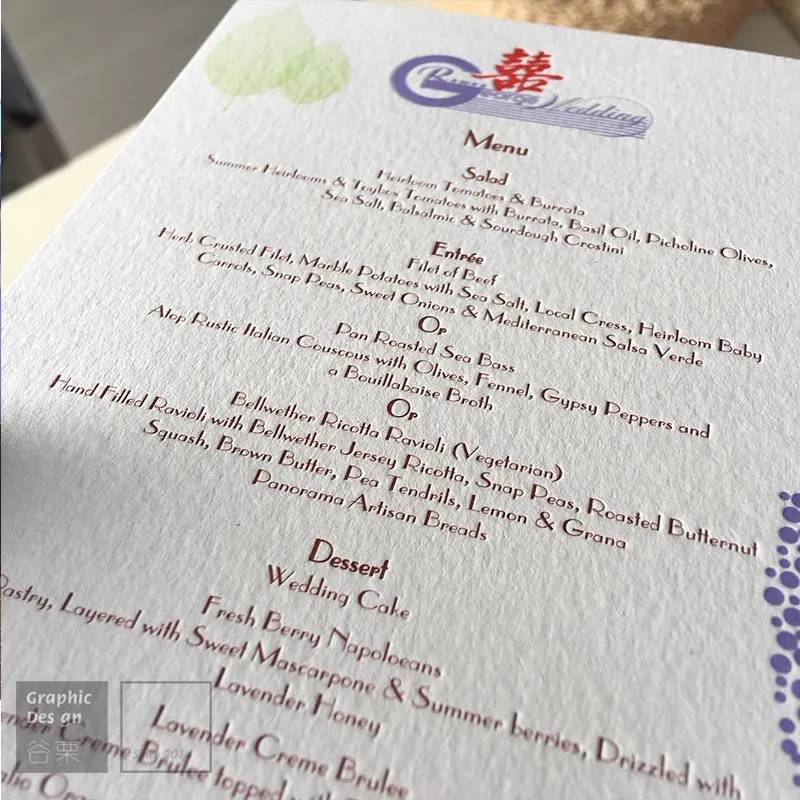 囍
George Wedding
Menu
Salad
Heirloom Tomatoes & Burrata
Summer Heirlooms & Toybox Tomatoes with Burrata, Basil Oil, Picholine Olives,
Sea Salt, Balsalmic & Sourdough Crostini
Entrée
Filet of Beef
Herb Crusted Filet, Marble Potatoes with Sea Salt, Local Cress, Heirloom Baby
Carrots, Snap Peas, Sweet Onions & Mediterranean Salsa Verde
Or
Pan Roasted Sea Bass
Atop Rustic Italian Couscous with Olives, Fennel, Gypsy Peppers and
a Bouillabaise Broth
Or
Bellwether Ricotta Ravioli (Vegetarian)
Hand Filled Ravioli with Bellwether Jersey Ricotta, Snap Peas, Roasted Butternut
Squash, Brown Butter, Pea Tendrils, Lemon & Grana
Panorama Artisan Breads
Dessert
Wedding Cake
Fresh Berry Napoloeans
Pastry, Layered with Sweet Mascarpone & Summer berries, Drizzled with
Lavender Honey
Lavender Creme Brulee
Creme Brulee topped with
Graphic
Des gn
谷栗